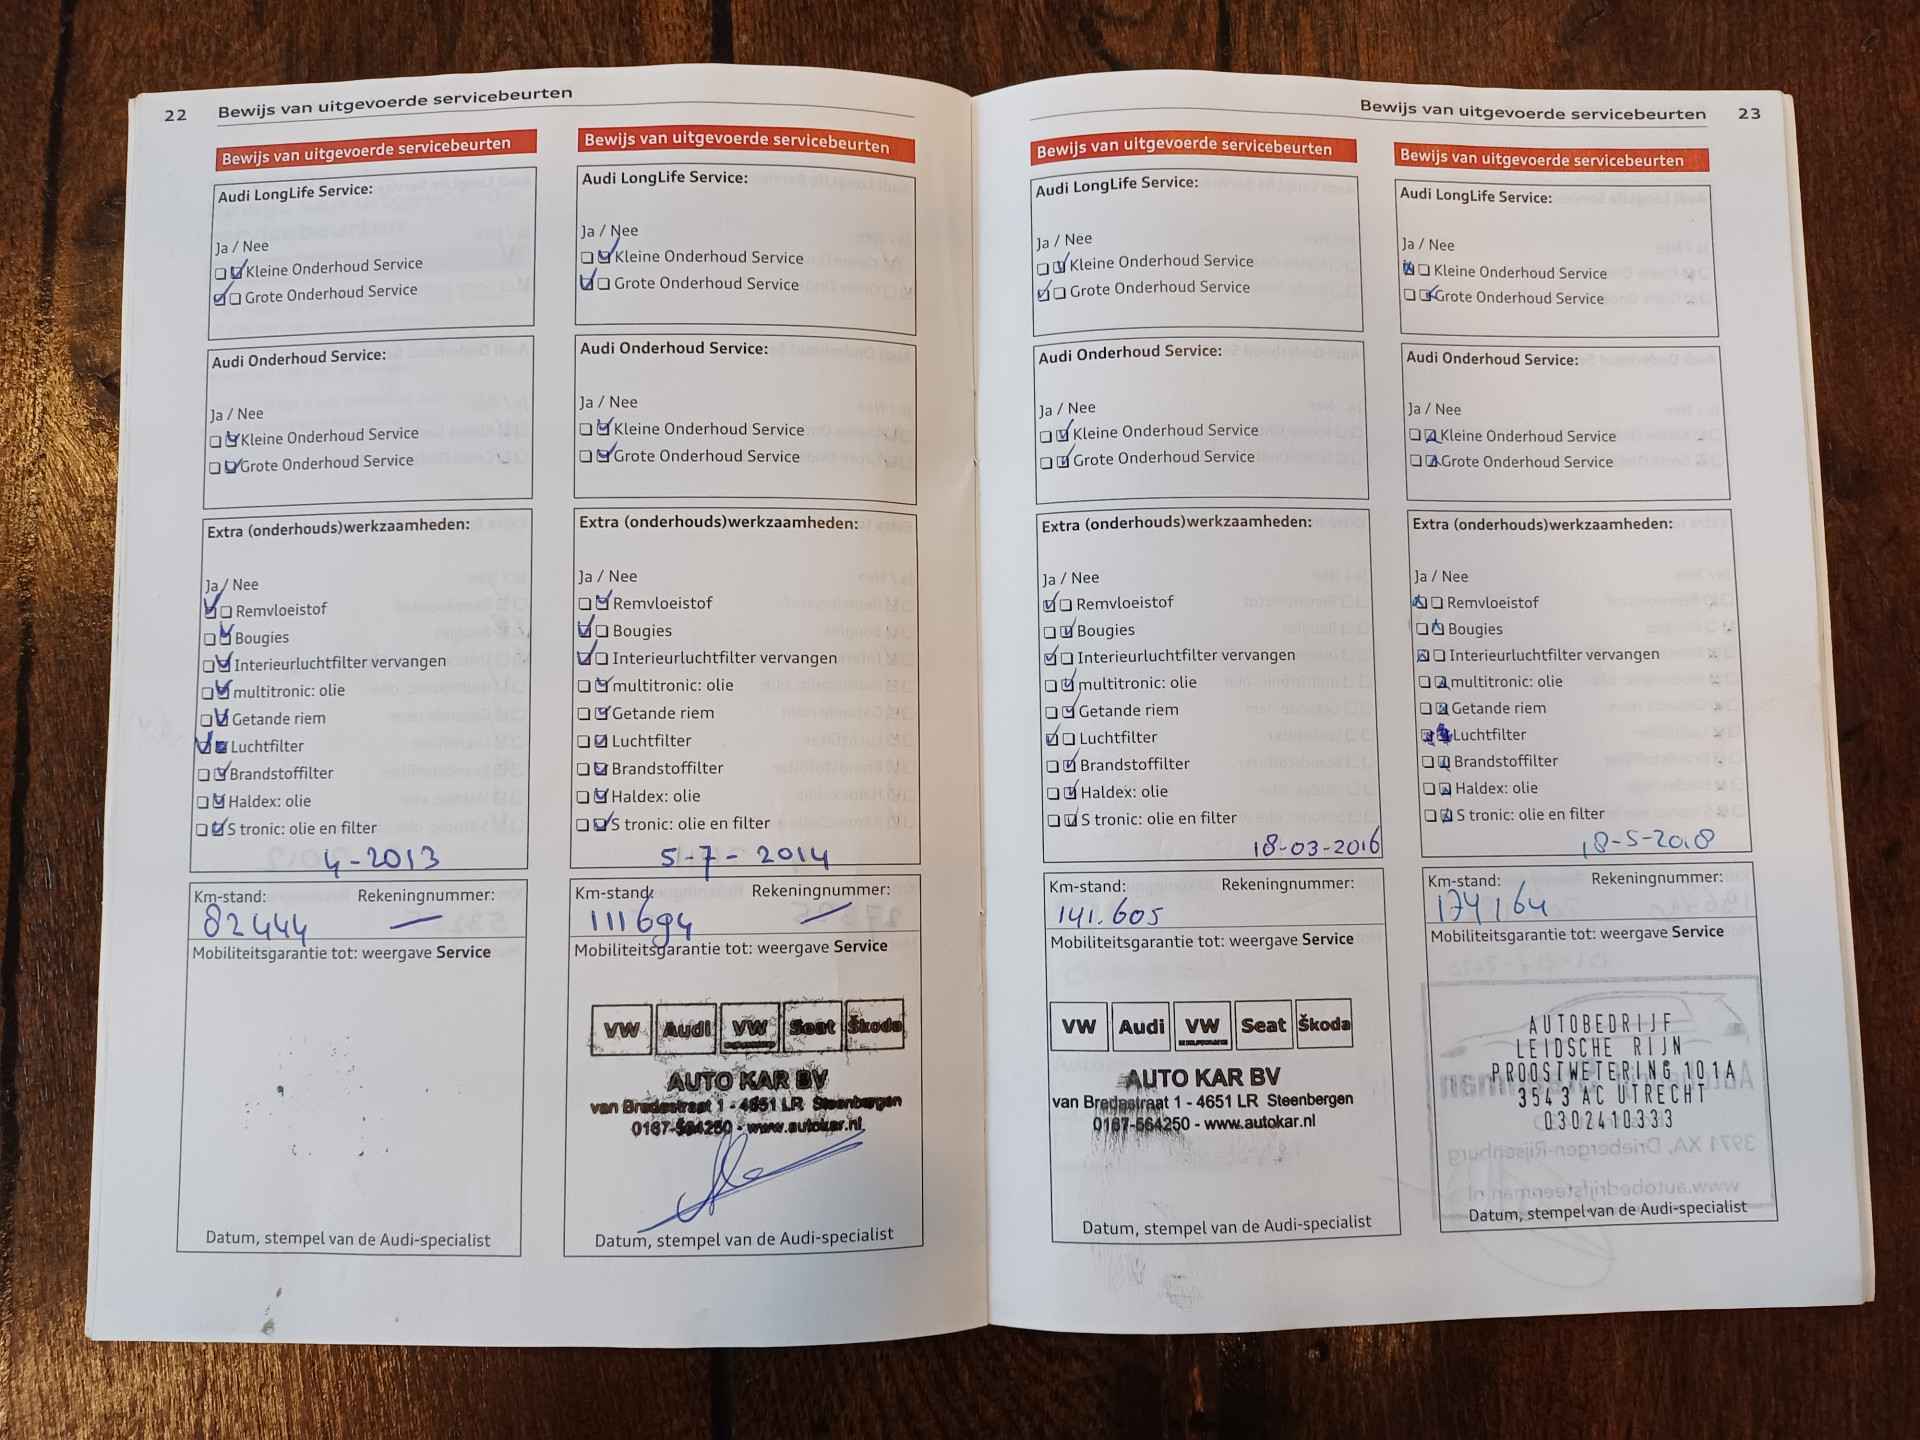 22 Bewijs van uitgevoerde servicebeurten
Bewijs van uitgevoerde servicebeurten
Audi LongLife Service:
Ja / Nee
Kleine Onderhoud Service
Grote Onderhoud Service
Audi Onderhoud Service:
Ja / Nee
Kleine Onderhoud Service
Grote Onderhoud Service
Extra (onderhouds)werkzaamheden:
Ja / Nee
Remvloeistof
Bougies
Interieurluchtfilter vervangen
multitronic: olie
Getande riem
Luchtfilter
Brandstoffilter
Haldex: olie
S tronic: olie en filter
4-2013
Km-stand: Rekeningnummer:
82444 —
Mobiliteitsgarantie tot: weergave Service
Datum, stempel van de Audi-specialist
Bewijs van uitgevoerde servicebeurten
Audi LongLife Service:
Ja / Nee
Kleine Onderhoud Service
Grote Onderhoud Service
Audi Onderhoud Service:
Ja / Nee
Kleine Onderhoud Service
Grote Onderhoud Service
Extra (onderhouds)werkzaamheden:
Ja / Nee
Remvloeistof
Bougies
Interieurluchtfilter vervangen
multitronic: olie
Getande riem
Luchtfilter
Brandstoffilter
Haldex: olie
S tronic: olie en filter
5-7-2014
Km-stand: Rekeningnummer:
111694 —
Mobiliteitsgarantie tot: weergave Service
VW Audi VW Seat Škoda
AUTO KAR BV
van Bredastraat 1 - 4651 LR Steenbergen
0167-564250 - www.autokar.nl
Datum, stempel van de Audi-specialist
Bewijs van uitgevoerde servicebeurten 23
Bewijs van uitgevoerde servicebeurten
Audi LongLife Service:
Ja / Nee
Kleine Onderhoud Service
Grote Onderhoud Service
Audi Onderhoud Service:
Ja / Nee
Kleine Onderhoud Service
Grote Onderhoud Service
Extra (onderhouds)werkzaamheden:
Ja / Nee
Remvloeistof
Bougies
Interieurluchtfilter vervangen
multitronic: olie
Getande riem
Luchtfilter
Brandstoffilter
Haldex: olie
S tronic: olie en filter
18-03-2016
Km-stand: Rekeningnummer:
141.605
Mobiliteitsgarantie tot: weergave Service
VW Audi VW Seat Škoda
AUTO KAR BV
van Bredastraat 1 - 4651 LR Steenbergen
0167-564250 - www.autokar.nl
Datum, stempel van de Audi-specialist
Bewijs van uitgevoerde servicebeurten
Audi LongLife Service:
Ja / Nee
Kleine Onderhoud Service
Grote Onderhoud Service
Audi Onderhoud Service:
Ja / Nee
Kleine Onderhoud Service
Grote Onderhoud Service
Extra (onderhouds)werkzaamheden:
Ja / Nee
Remvloeistof
Bougies
Interieurluchtfilter vervangen
multitronic: olie
Getande riem
Luchtfilter
Brandstoffilter
Haldex: olie
S tronic: olie en filter
18-5-2018
Km-stand: Rekeningnummer:
174164
Mobiliteitsgarantie tot: weergave Service
AUTOBEDRIJF
LEIDSCHE RIJN
PROOSTWETERING 101A
3543 AC UTRECHT
0302410333
Datum, stempel van de Audi-specialist